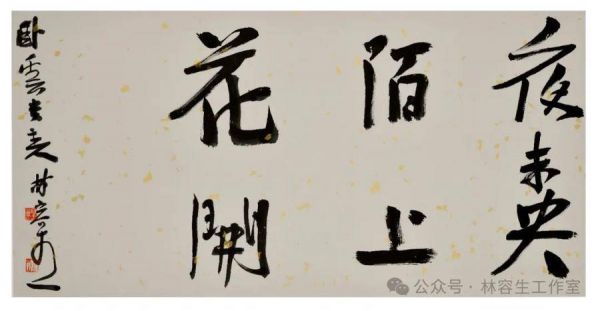 夜未央
陌上
花開
卧雲 林容生
公众号 · 林容生工作室